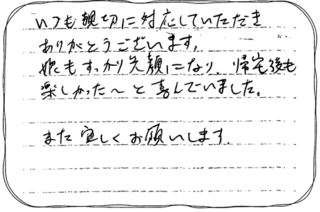 いつも親切に対応していただき
ありがとうございます。
娘もすっかり笑顔になり、帰宅後も
楽しかった〜と喜んでいました。
また宜しくお願いします。